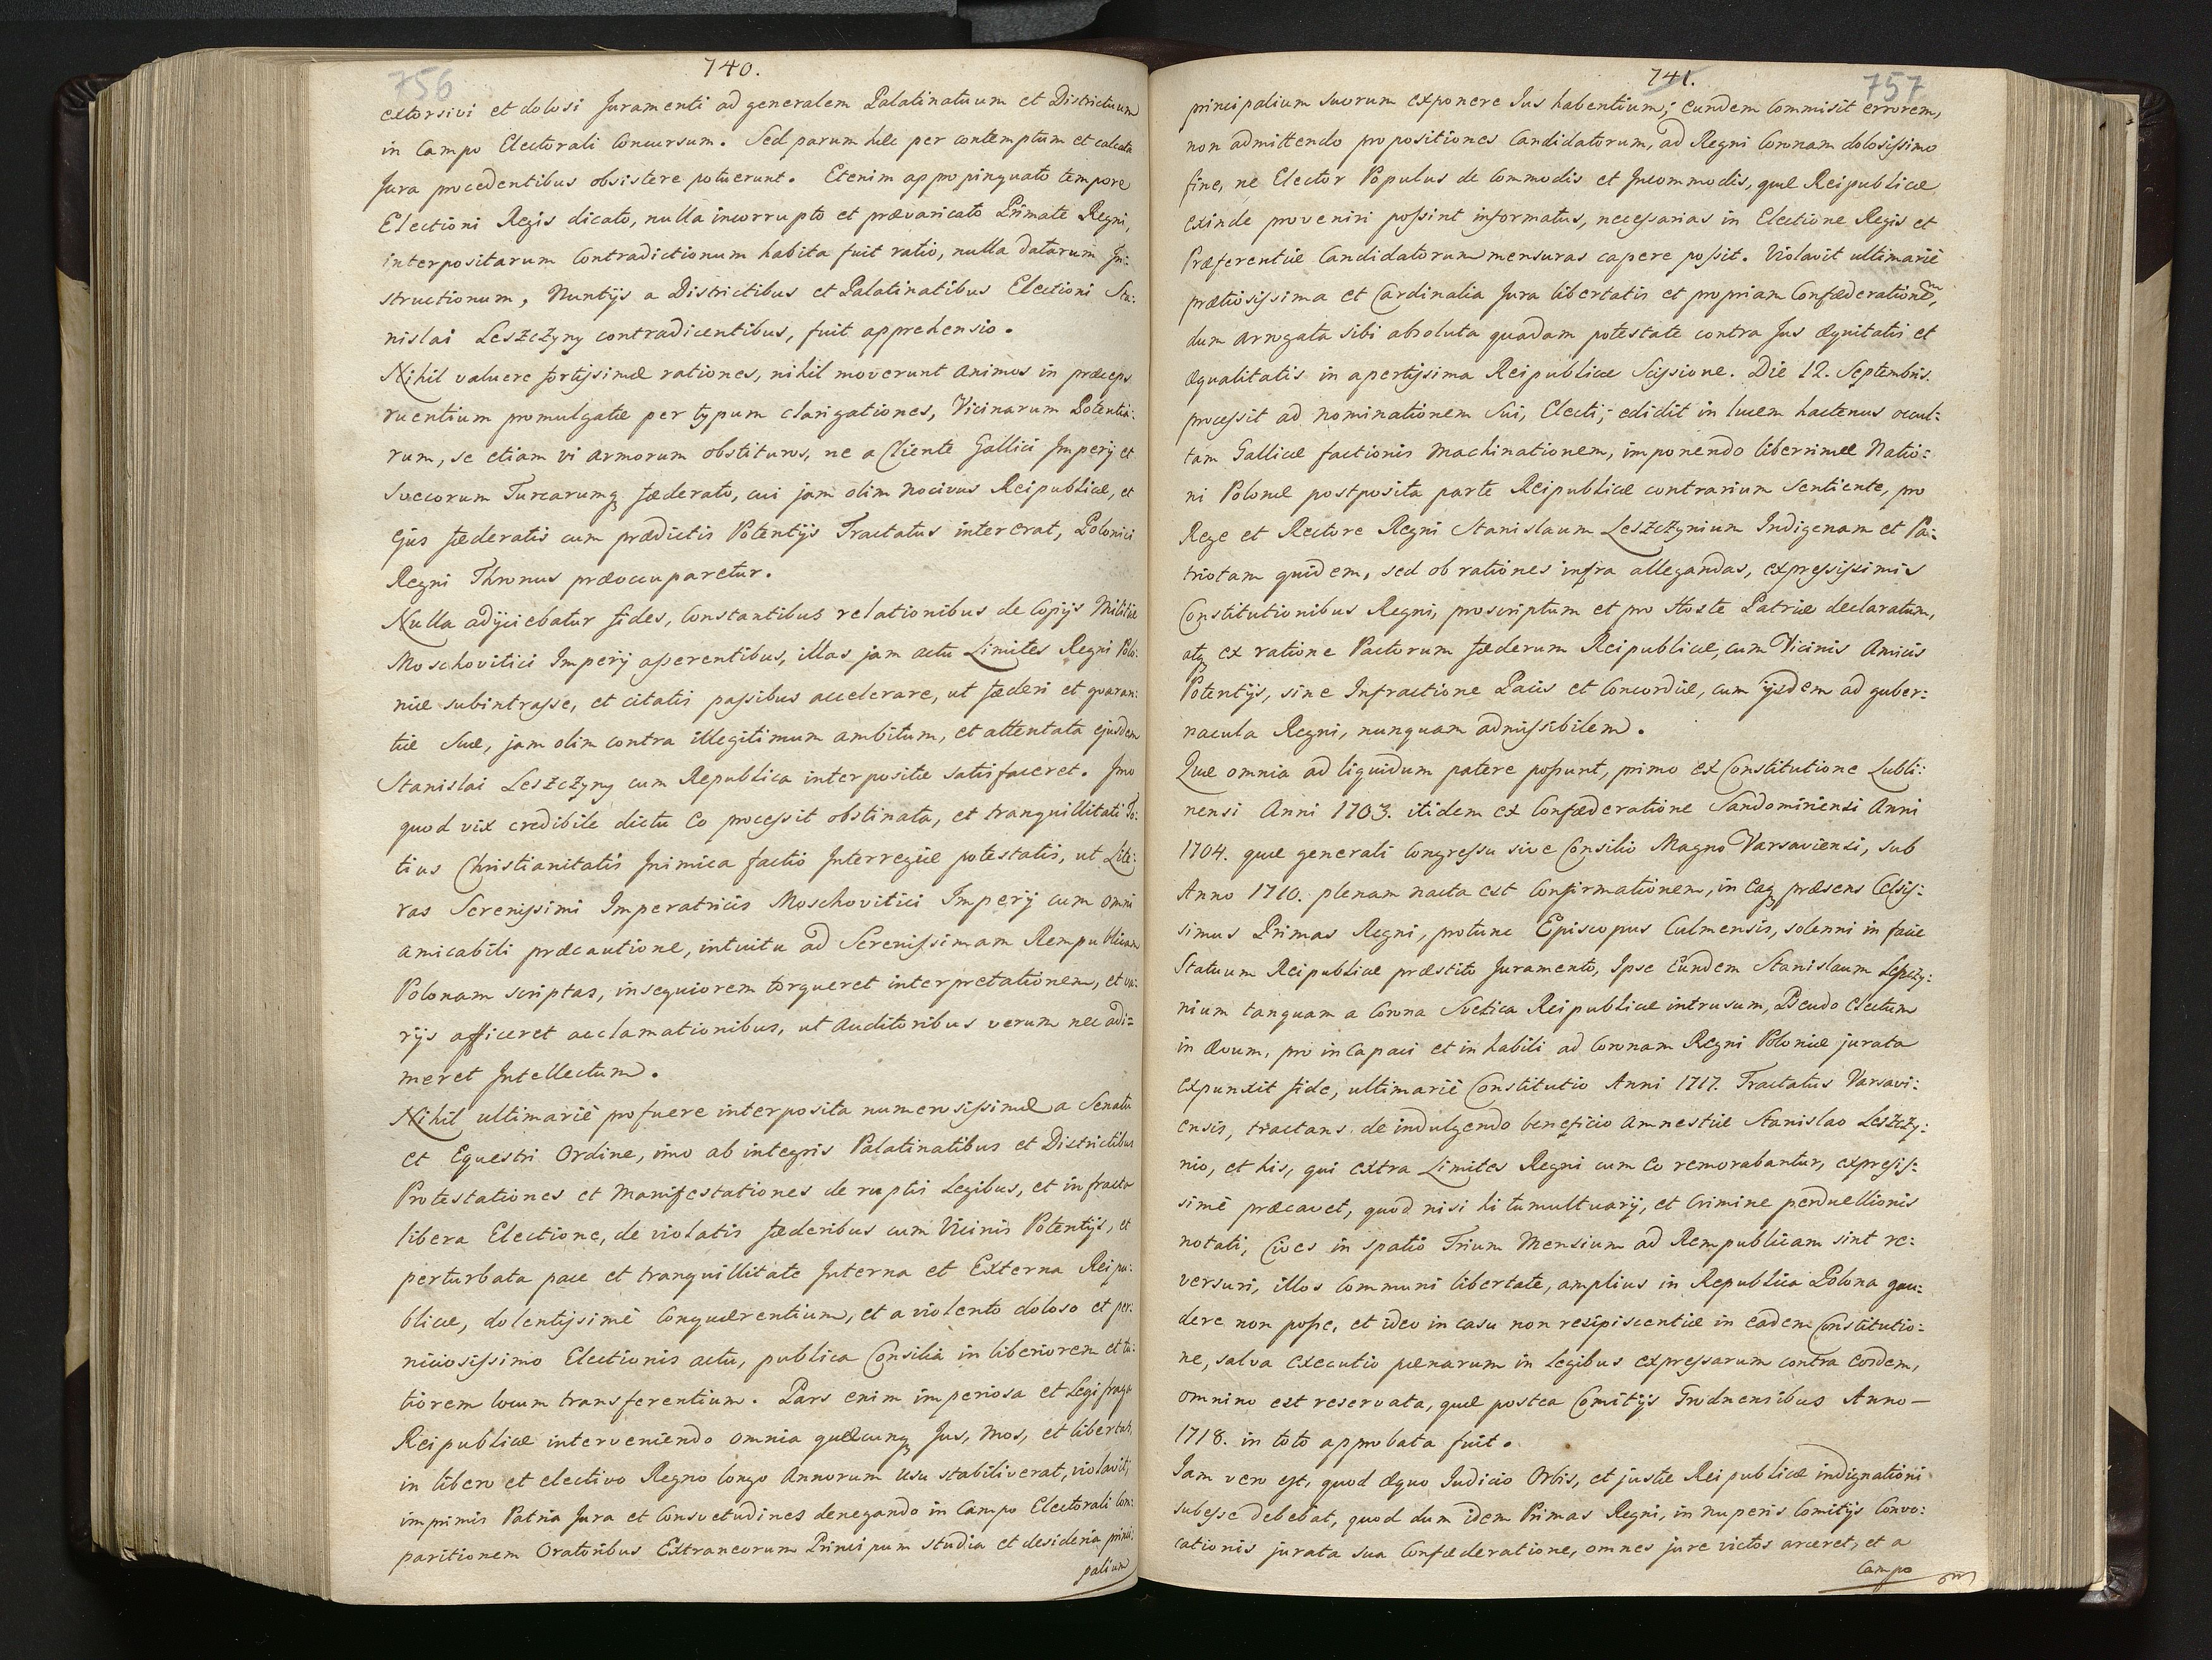 756
740.
extorsivi et dolosi Juramenti ad generalem Palatinatuum et Districtuum
in Campo Electorali Concursum. Sed parum hæc per contemptum et calcata
Jura procedentibus obsistere potuerunt. Etenim appropinquato tempore
Electioni Regis dicato, nulla incorrupto et prævaricato Primate Regni,
interpositarum Contradictionum habita fuit ratio, nulla datarum In:
structionum, Nuntijs a Districtibus et Palatinatibus Electioni Sta:
nislai Leszczyny contradicentibus, fuit apprehensio.
Nihil valuere fortissimæ rationes, nihil moverunt animos in præceps
ruentium promulgatæ per typum clarigationes, Vicinarum Potentia:
rum, se etiam vi armorum obstituros, ne a Cliente Gallici Imperij et
Svecorum Turcarumq fæderato, cui jam olim nocivus Reipublicæ, et
ejus fæderatis cum prædictis Potentijs Tractatus intererat, Polonici
Regni Thronus præoccuparetur.
Nulla adijciebatur fides, Constantibus relationibus de Copijs Militiæ
Moschovitici Imperij asserentibus, illas jam actu Limites Regni Polo:
niæ subintrasse, et citatis passibus accelerare, ut fæderi et guaran:
tiæ suæ, jam olim contra illegitimum ambitum, et attentata ejusdem
Stanislai Leszczyny cum Republica interpositæ satisfaceret. Imo
quod vix credibile dictu eo processit obstinata, et tranquillitati To:
tius Christianitatis Inimica factio Interregiæ potestatis, ut Lite:
ras Serenissimi Imperatricis Moschovitici Imperij cum omni
amicabili præcautione, intuitu ad Serenissimam Rempublicam
Polonam scriptas, in sequiorem torqueret interpretationem, et va:
rijs afficeret acclamationibus, ut Auditoribus verum nec adi=
meret Intellectum.
Nihil ultimariè profuere interposita numerosissimæ a Senatu
et Equestri Ordine, imo ab integris Palatinatibus et Districtibus
Protestationes et Manifestationes de ruptis Legibus, et infracta
libera Electione, de violatis fæderibus cum Vicinis Potentijs, et
perturbata pace et tranquillitate Interna et Externa Reipu:
blicæ, dolentissimè Conquærentium, et a violento doloso et per:
niciosissimo Electionis actu, publica Consilia in liberiorem et tu:
tiorem locum transferentium. Pars enim imperiosa et Legifraga
Reipublicæ interveniendo omnia quæcunq Jus, mos, et libertas,
in libero et electivo Regno longo Annorum usu stabiliverat, violavit,
imprimis Patria Jura et Consvetudines denegando in Campo Electorali Com:
paritionem Oratoribus Extraneorum Principum studia et desideria princi:
palium
757
741.
principalium suorum exponere Jus habentium; eundem Commisit errorem,
non admittendo propositiones Candidatorum, ad Regni Coronam dolosissimo
fine, ne Elector Populus de Commodis et Incommodis, quæ Reipublicæ
exinde provenire possint informatus, necessarias in Electione Regis et
Præferentiæ Candidatorum mensuras capere possit. Violavit ultimariè
prætiosissima et Cardinalia Jura libertatis et propriam Confæderationem,
dum arrogata sibi absoluta quadam potestate contra Jus æquitatis et
æqualitatis in apertissima Reipublicæ Scissione. Die 12. Septembris.
processit ad nominationem Sui, Electi; edidit in lucem hactenus occul:
tam Gallicæ factionis Machinationem, imponendo liberrimæ Natio:
ni Polonæ postposita parte Reipublicæ contrarium Sentiente, pro
Rege et Rectore Regni Stanislaum Leszczynium Indigenam et Pa:
triotam quidem, sed ob rationes infra allegandas, expressissimis
Constitutionibus Regni, proscriptum et pro Hoste Patriæ declaratum,
atq ex ratione Pactorum fæderum Reipublicæ, cum Vicinis Amicis
Potentijs, sine Infractione Pacis et Concordiæ, cum ijsdem ad guber:
nacula Regni, nunquam admissibilem.
Quæ omnia ad liquidum patere possunt, primo ex Constitutione Lubli:
nensi Anni 1703. itidem ex Confæderatione Sandomiriensi Anni
1704. quæ generali Congressu sive Consilio Magno Varsaviensi, sub
Anno 1710. plenam nacta est Confirmationem, in eaq præsens Celsis:
simus Primas Regni, protunc Episcopus Culmensis, solenni in facie
Statuum Reipublicæ præstito Juramento, Ipse Eundem Stanislaum Leszczy:
nium tanquam a Corona Svetica Reipublicæ intrusum, Pseudo Electum
in ævum, pro incapaci et inhabili ad Coronam Regni Poloniæ jurata
expunxit fide, ultimariè Constitutio Anni 1717. Tractatus Varsavi:
ensis, tractans de indulgendo beneficio Amnestiæ Stanislao Leszczy:
nio, et his, qui extra Limites Regni cum eo remorabantur, expressis:
simè præcavet, quod nisi hi tumultuarij, et Crimine perduellionis
notati, Cives in spatio Trium Mensium ad Rempublicam sint re:
versuri, illos Communi libertate, amplius in Republica Polona gau:
dere non posse, et ideo in casu non resipiscentiæ in eadem Constitutio=
ne, salva executio pænarum in Legibus expressarum contra eosdem,
omnino est reservata, quæ postea Comitijs Grodnensibus Anno —
1718. in toto approbata fuit.
Iam vero est, quod æquo Iudicio Orbis, et justæ Reipublicæ indignationi
subesse debebat, quod dum idem Primas Regni, in nuperis Comitijs Convo:
cationis jurata sua Confæderatione, omnes jure victos arceret, et a
Campo